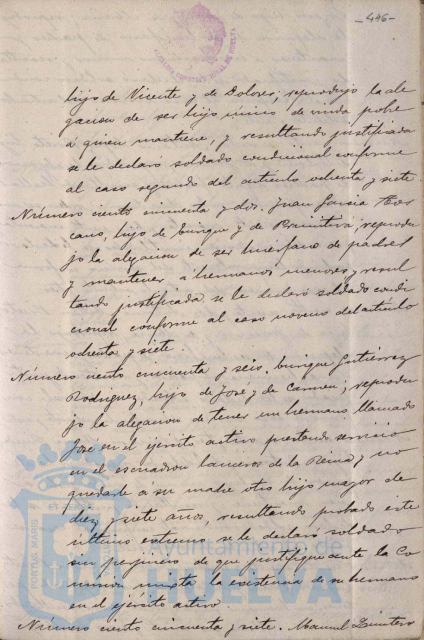 -446-
hijo de Vicente y de Dolores; reprodujo la ale
gacion de ser hijo único de viuda pobre
á quien mantiene, y resultando justificada
se le declaró soldado condicional conforme
al caso segundo del artículo ochenta y siete.
Número ciento cincuenta y dos. Juan García
cano, hijo de Enrique y de Primitiva, reprodu
jo la alegacion de ser huerfano de padres
y mantener á hermanos menores, y resul
tando justificada se le declaró soldado condi
cional conforme al caso noveno del artículo
ochenta y siete.
Número ciento cincuenta y seis, Enrique Gutiérrez
Rodriguez, hijo de José y de Carmen; reprodu
jo la alegacion de tener un hermano llamado
José en el ejército activo prestando servicio
en el escuadron lanceros de la Reina y no
quedarle á su madre otro hijo mayor de
diez y siete años, resultando probado este
último extremo se le declaró soldado
sin perjuicio de que justifique ante la Co
mision mixta la existencia de su hermano
en el ejército activo.
Número ciento cincuenta y siete. Manuel Quintero
PORTUS MARIS
Ayuntamiento de
HUELVA